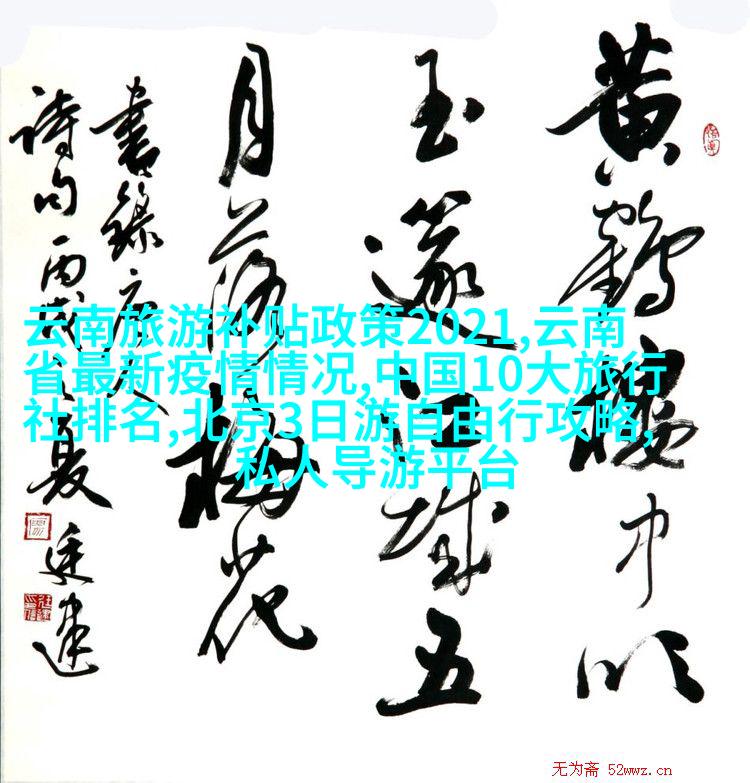 黄鶴樓中吹
玉篴江城五
月落梅花
書錄唐人
诗句丙戌夏廷建
云南旅游补贴政策2021,云南
省最新疫情情况,中国10大旅行
社排名,北京3日游自由行攻略,
私人导游平台
无为斋 52wwz.cn